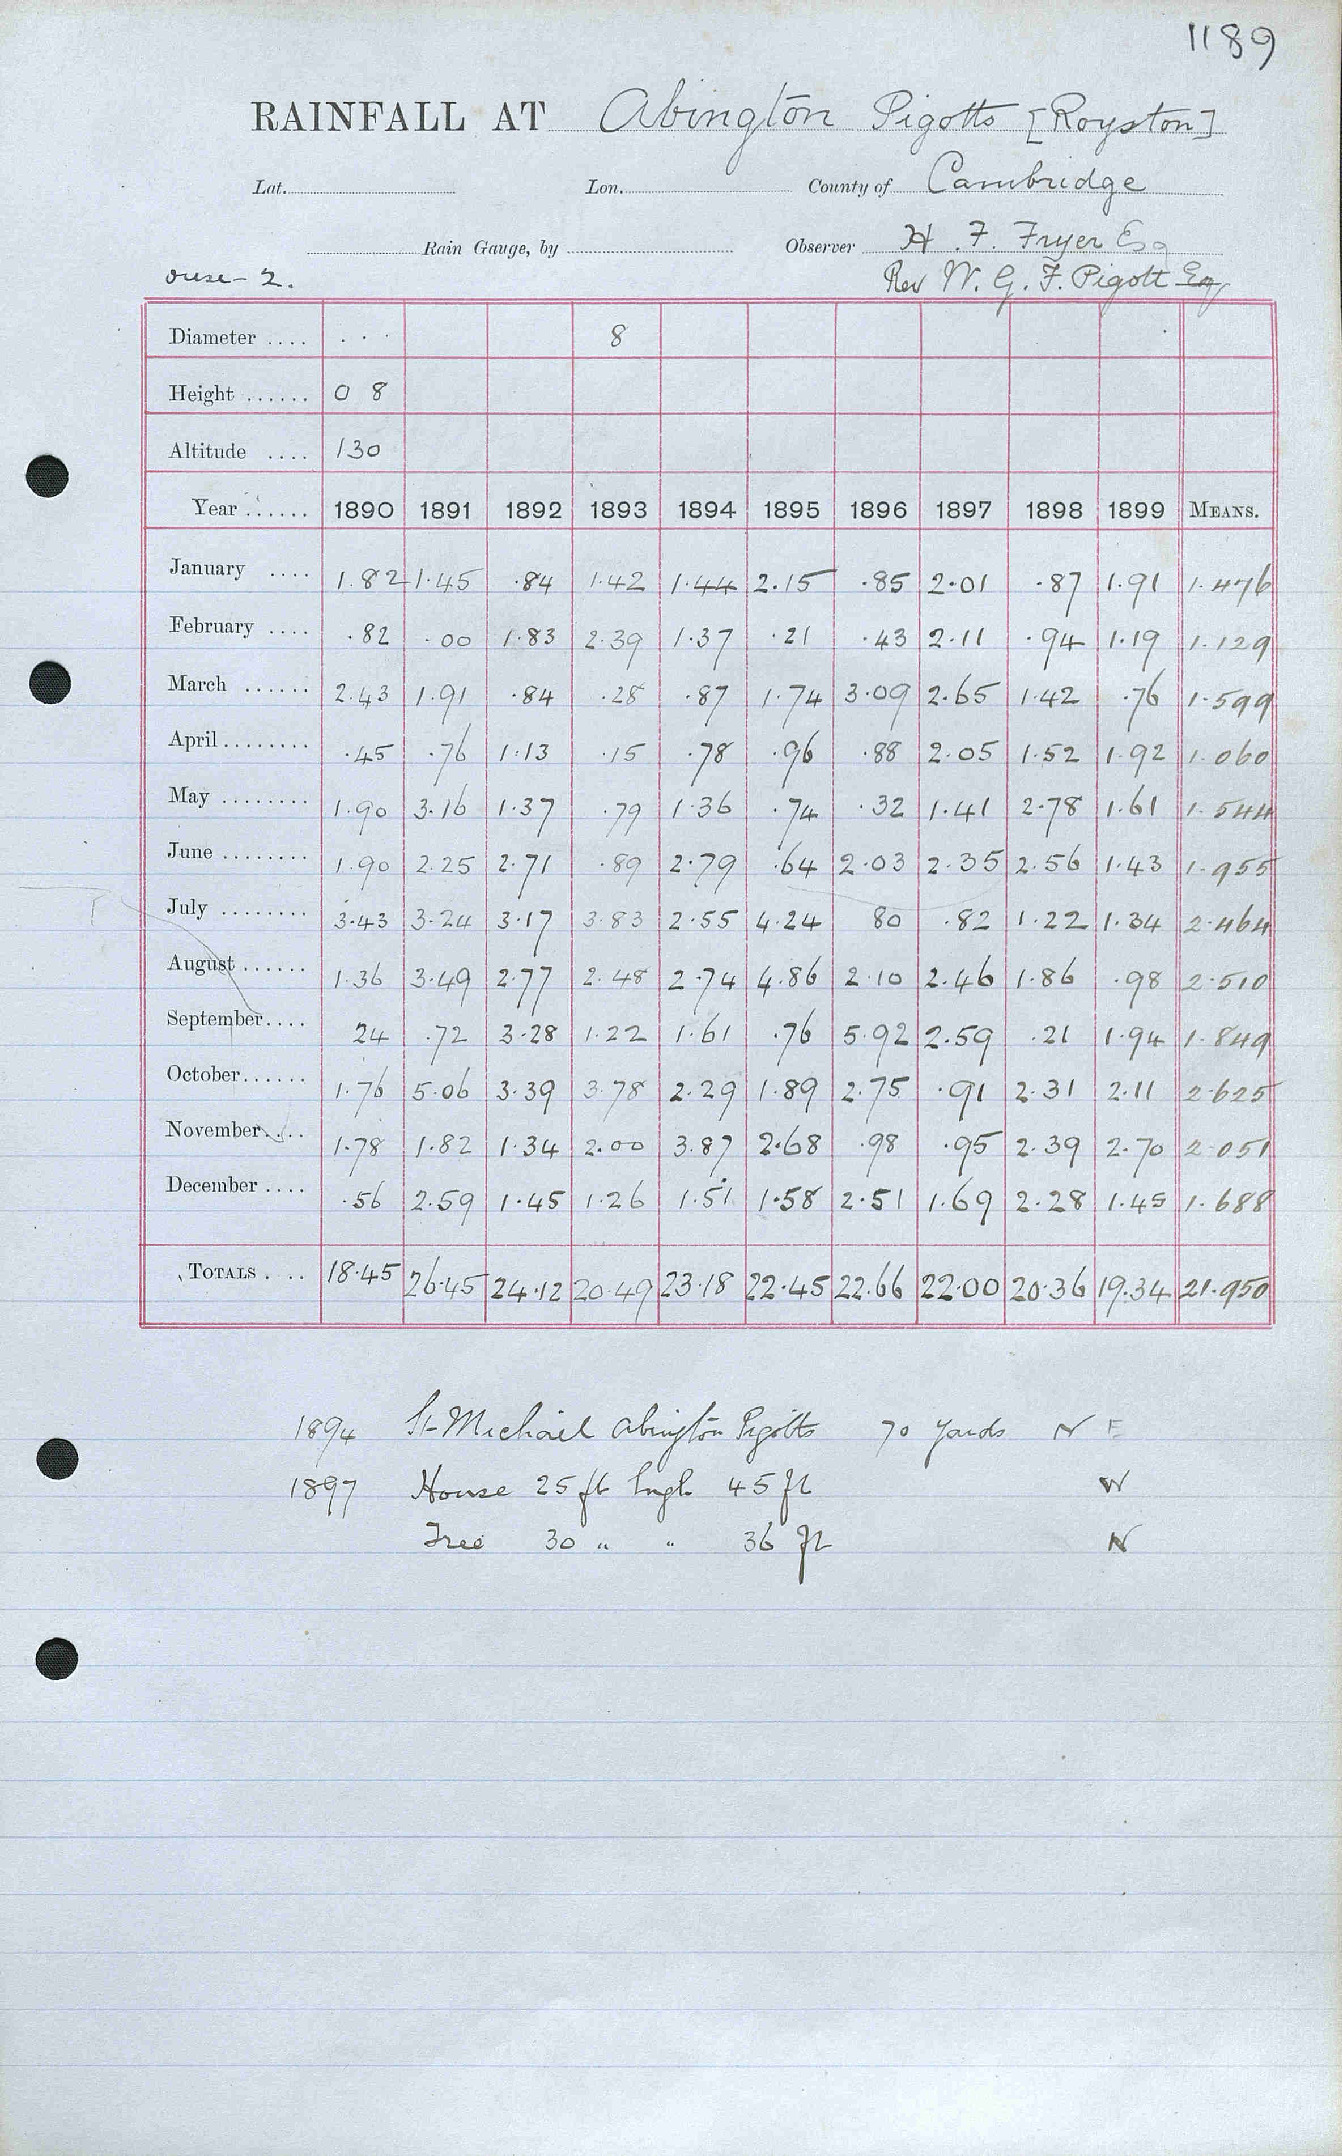 1189
RAINFALL AT Abington Pigotts [Royston]
Lat. Lon. County of Cambridge
Rain Gauge, by Observer H. F. Fryer Esq
Ouse - 2. Rev W. G. F. Pigott Esq
Diameter .... . . . 8
Height ...... 0 8
Altitude .... 130
Year ...... 1890 1891 1892 1893 1894 1895 1896 1897 1898 1899 MEANS.
January .... 1.82 1.45 .84 1.42 1.44 2.15 .85 2.01 .87 1.91 1.476
February .... .82 .00 1.83 2.39 1.37 .21 .43 2.11 .94 1.19 1.129
March ...... 2.43 1.91 .84 .28 .87 1.74 3.09 2.65 1.42 .76 1.599
April ........ .45 .76 1.13 .15 .78 .96 .88 2.05 1.52 1.92 1.060
May ........ 1.90 3.16 1.37 .79 1.36 .74 .32 1.41 2.78 1.61 1.544
June ........ 1.90 2.25 2.71 .89 2.79 .64 2.03 2.35 2.56 1.43 1.955
July ........ 3.43 3.24 3.17 3.83 2.55 4.24 80 .82 1.22 1.34 2.464
August ...... 1.36 3.49 2.77 2.48 2.74 4.86 2.10 2.46 1.86 .98 2.510
September.... 24 .72 3.28 1.22 1.61 .76 5.92 2.59 .21 1.94 1.849
October...... 1.76 5.06 3.39 3.78 2.29 1.89 2.75 .91 2.31 2.11 2.625
November.... 1.78 1.82 1.34 2.00 3.87 2.68 .98 .95 2.39 2.70 2.051
December .... .56 2.59 1.45 1.26 1.51 1.58 2.51 1.69 2.28 1.45 1.688
TOTALS .... 18.45 26.45 24.12 20.49 23.18 22.45 22.66 22.00 20.36 19.34 21.950
1894 St Michael Abington Pigotts 70 yards N E
1897 House 25 ft high 45 ft W
Tree 30 " " 36 ft N